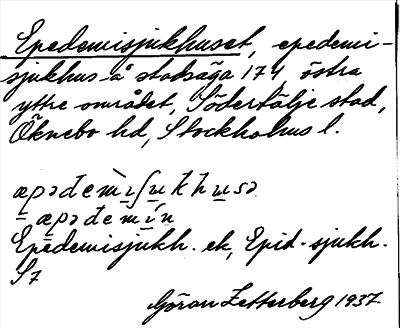 Epedemisjukhuset, epedemi-
sjukhus å stadsäga 174, östra
yttre området, Södertälje stad,
Öknebo hd, Stockholms l.
æpədem̀ɪʃu̲khu̲sə
æpədemín
Epedemisjukh. ek, Epid. sjukh.
S7
Göran Zetterberg 1937